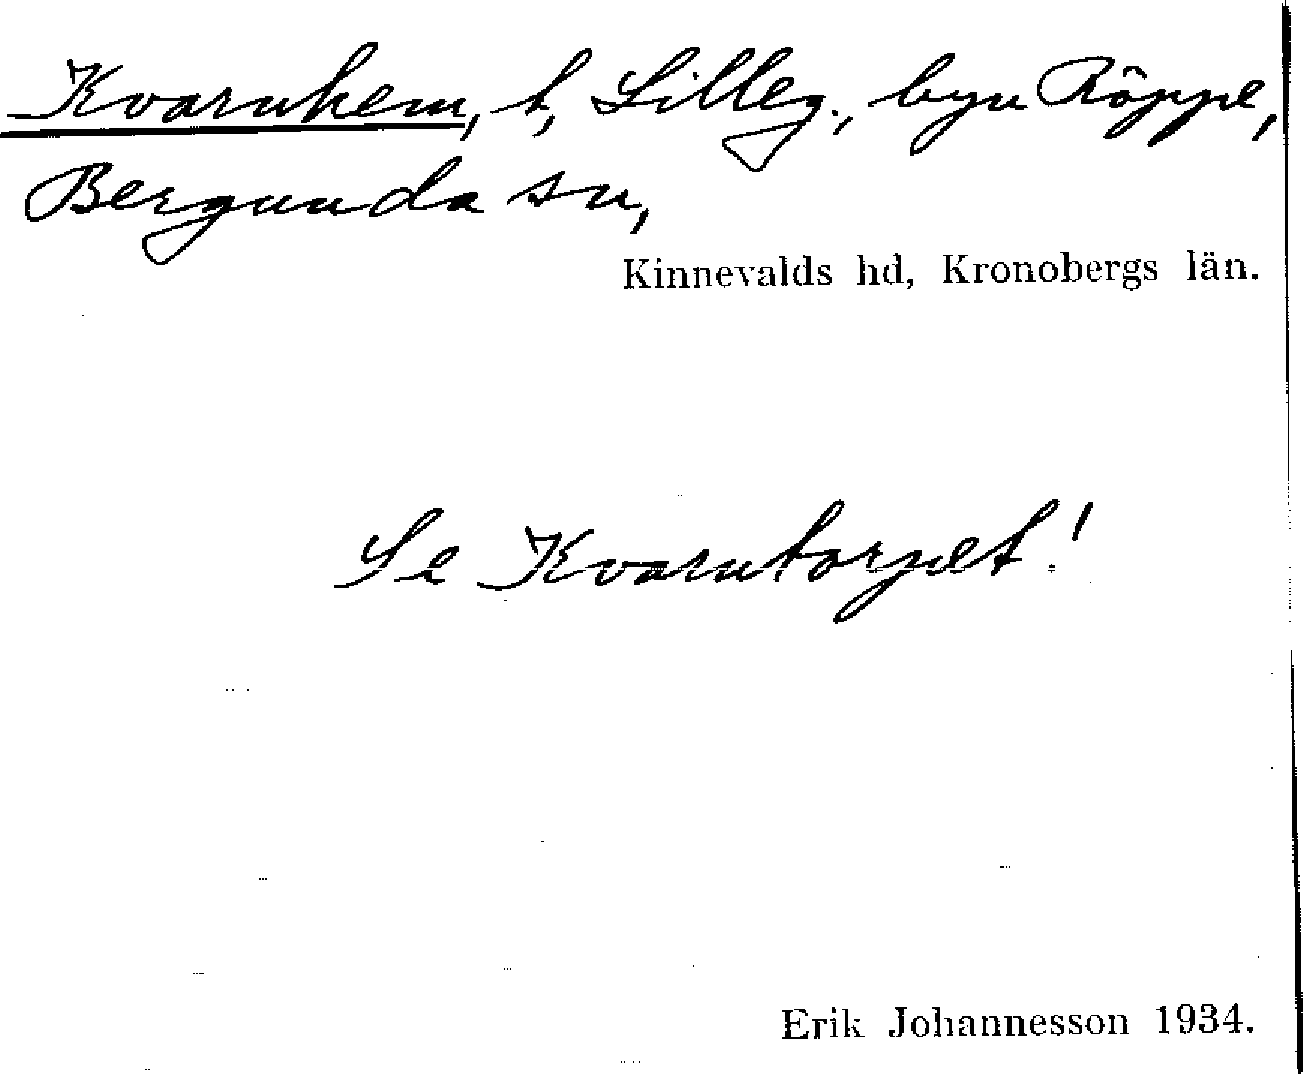 Kvarnhem, t, Lilleg., byn Röppe,
Bergunda sn,
Kinnevalds hd, Kronobergs län.
Se Kvarntorpet!
Erik Johannesson 1934.